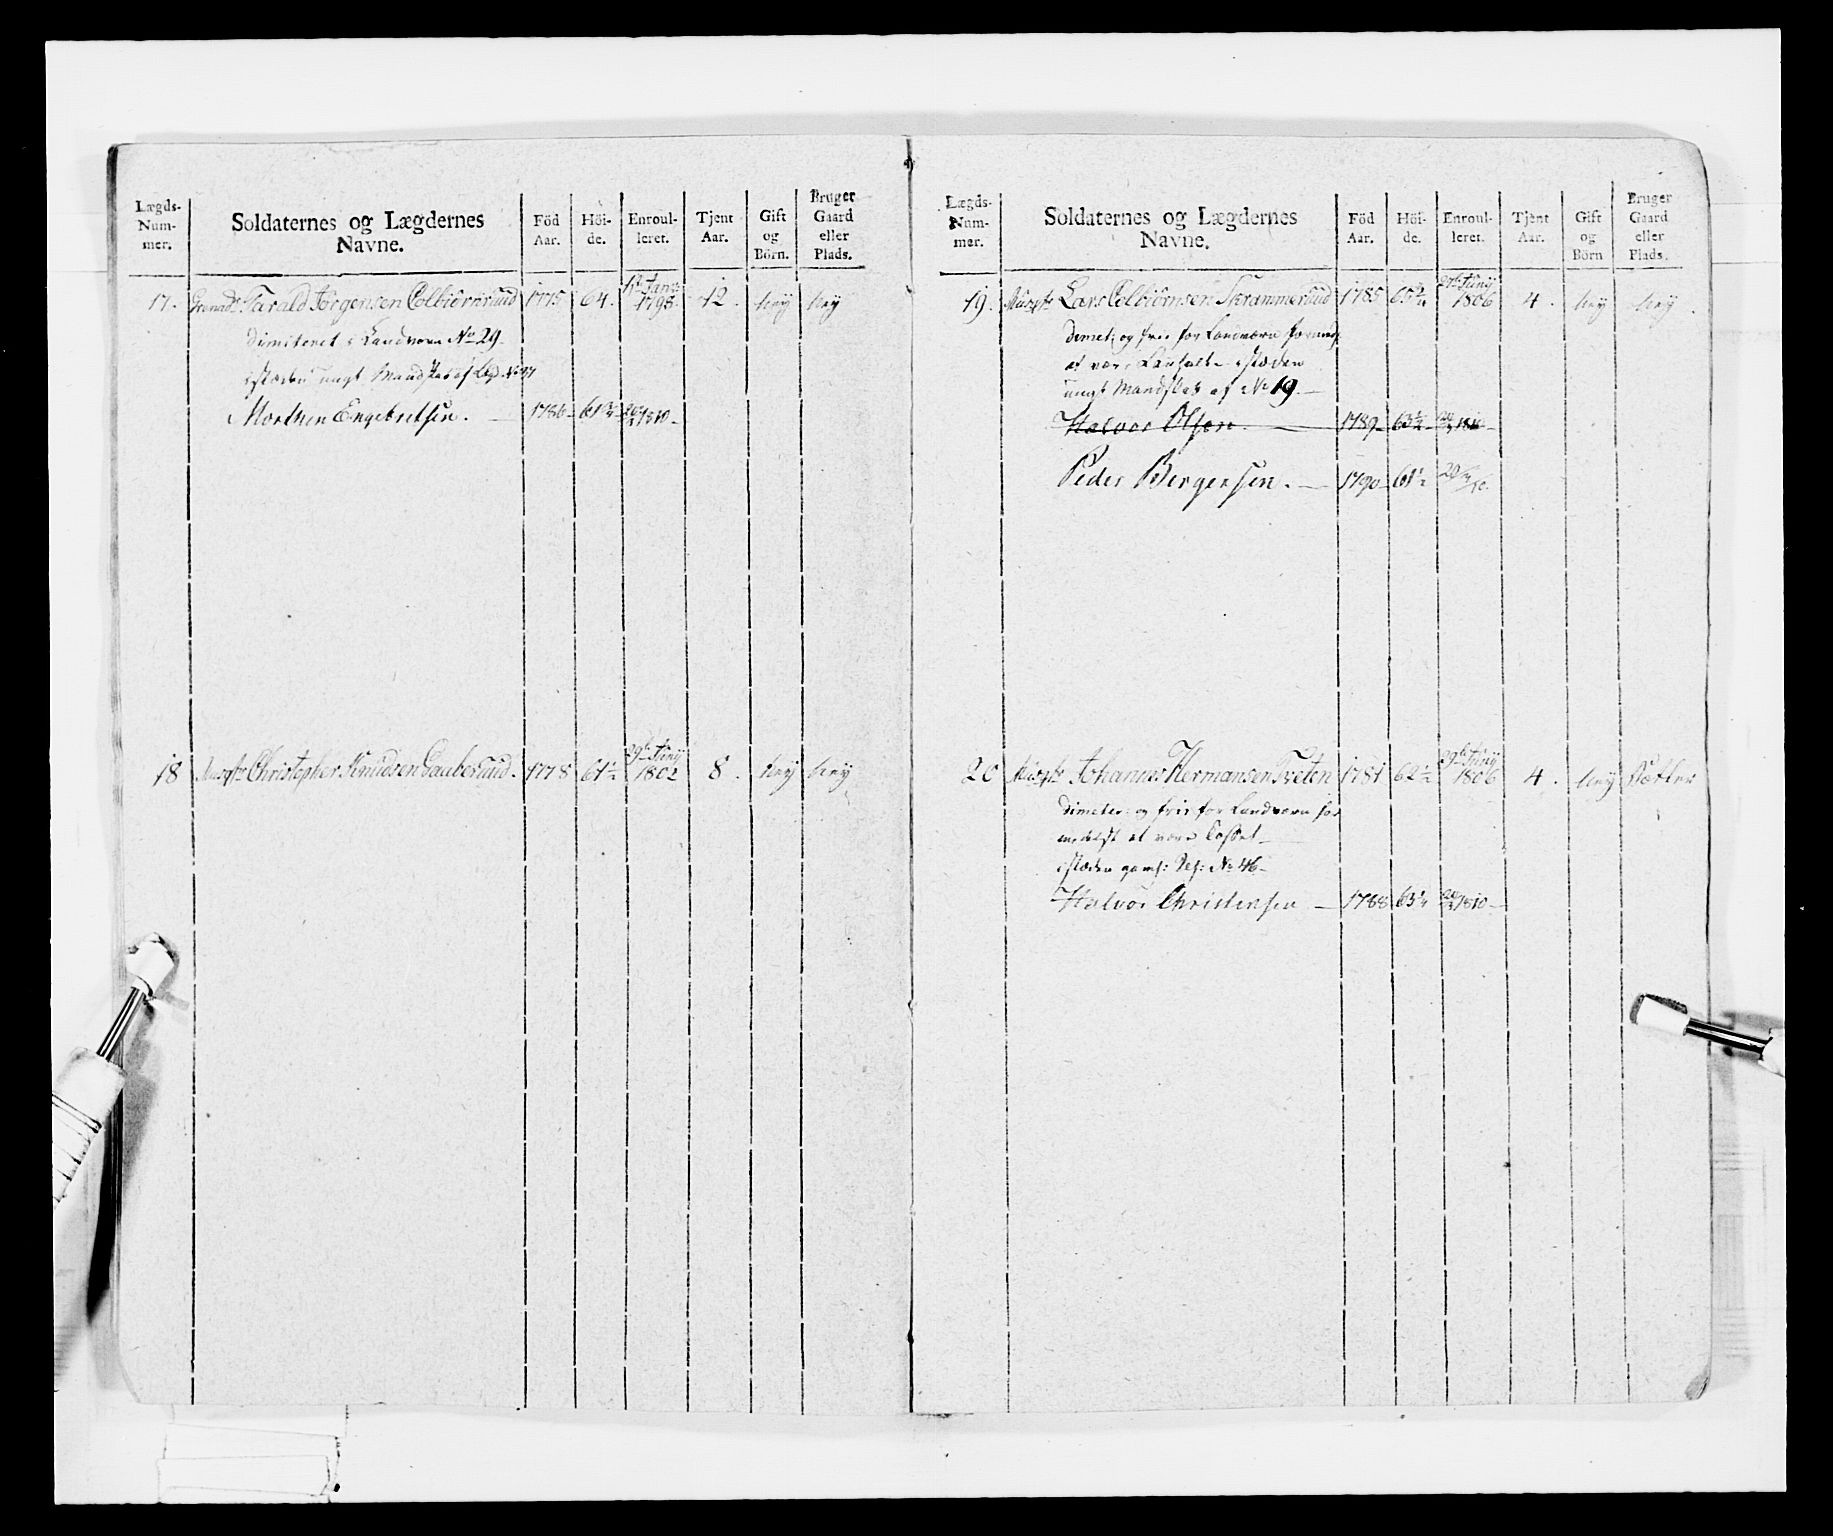 Lægds-Num-mer. Soldaternes og Lægdernes Navne. Föd Aar. Höi-de. Enroul-leret. Tjent Aar. Gift og Börn. Bruger Gaard eller Plads.
17. Grenad: Tarald Jørgensen Colbiörnrud 1775 64. 1te Janv: 1798 12. Ney Ney
Dimiteret i Landværn No 29
istæden ungt Mandskab af Lægd No 17
Morthen Engebretsen. 1786 1810
18 Musqtr Christopher Knudsen Gauberud. 1778 61½ 29de Juny 1802 8. Ney Ney
Lægds-Num-mer. Soldaternes og Lægdernes Navne. Föd Aar. Höi-de. Enroul-leret. Tjent Aar. Gift og Börn Bruger Gaard eller Plads.
19. Musqtr Lars Colbiörnsen Skrammerud 1785 1806 4. Ney Ney
Dimet: og frie for Landværn
at være istæden
ungt Mandskab af No 19.
Halvor Olsen 1789 1810
Peder Bergersen. 1790 61½ 20/4 10.
20 Musqtr Johannes Hermansen Tveten 1781 62½ 29de Juny 1806 4. Ney
Dimeter: og frie for Landværn for
medelst at være Casset
istæden No 46
Halvor Christensen 1788 1810